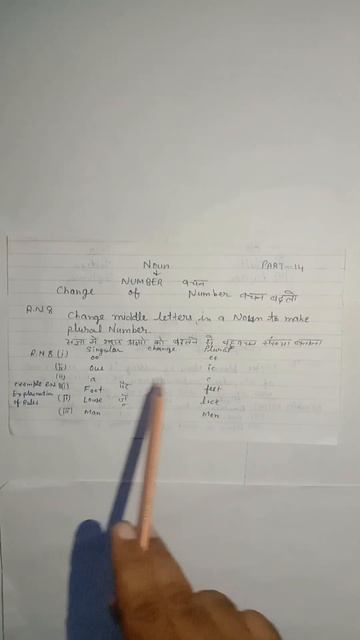 Noun PART-14
NUMBER वचन
Change of Number वचन बदलो
R.N 8 Change middle letters in a Noun to make
plural Number.
संज्ञा में मध्य अक्षरों को बदलने से बहुवचन संख्या बनाना
Singular change Plural
R.N 8 (i) oo ee
(ii) ous ic
(iii) a e
example R.N 8(i) Foot पैर feet
Explanation (ii) Louse जूँ lice
of Rules (iii) Man Men